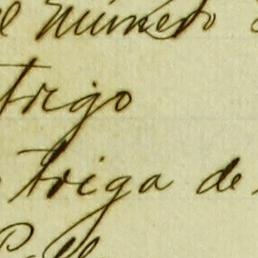 el Número
trigo
triga de